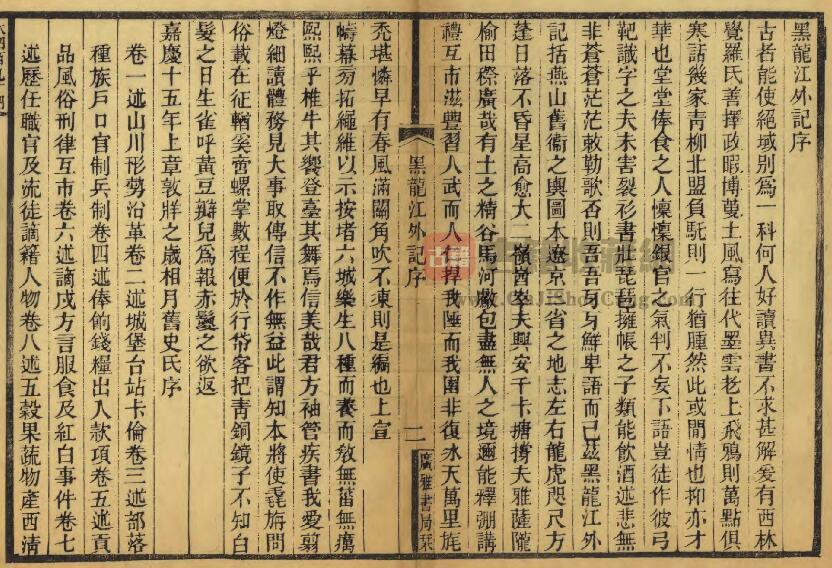 黑龍江外記序
古者能使絕域別爲一科何人好讀異書不求甚解爰有西林
覺羅氏善擇政暇博蒐土風寫往代墨雲老上飛鴉則萬點俱
寒話幾家靑柳北盟負馲則一行猶腫然此或閒情也抑亦才
華也堂堂俸食之人懍懍銀官之氣判不妄下語豈徒作彼弓
靶識字之夫未害裂衫書壯琵琶擁帳之子類能飲酒述悲無
非蒼蒼茫茫敕勒歌否則吾吾身身鮮卑語而已茲黑龍江外
記括燕山舊衞之輿圖本遼京一省之地志左右龍虎咫尺方
蓬日落不昏星高愈大二嶺皆
夫興安千卡搪撐夫雅薩隴
榆田檪廣哉有土之精谷馬河嚴包盡無人之境邇能釋弸講
禮互市滋豐習人武而人
捍我陲而我圉非復氷天萬里旄
黑龍江外記序
二
廣雅書局栞
禿堪憐早有春風滿關角吹不凍則是編也上宣
幬幕易拓繩維以示按堵六城樂生八種而養而敎無菑無癘
熙熙乎椎牛其饗登臺其舞焉信美哉君方袖管疾書我愛翦
燈細讀體務見大事取傳信不作無益此謂知本將使毳旃問
俗載在征輶
螺掌數程便於行帒客把靑銅鏡子不知白
髮之日生雀呼黃豆瓣兒爲報赤鬉之欲返
嘉慶十五年上章敦牂之歲相月舊史氏序
卷一述山川形勢沿革卷二述城堡台站卡倫卷三述部落
種族戶口官制兵制卷四述俸餉錢糧出入款項卷五述貢
品風俗刑律互市卷六述謫戍方言服食及紅白事件卷七
述歷任職官及流徒謫籍人物卷八述五穀果蔬物產西淸